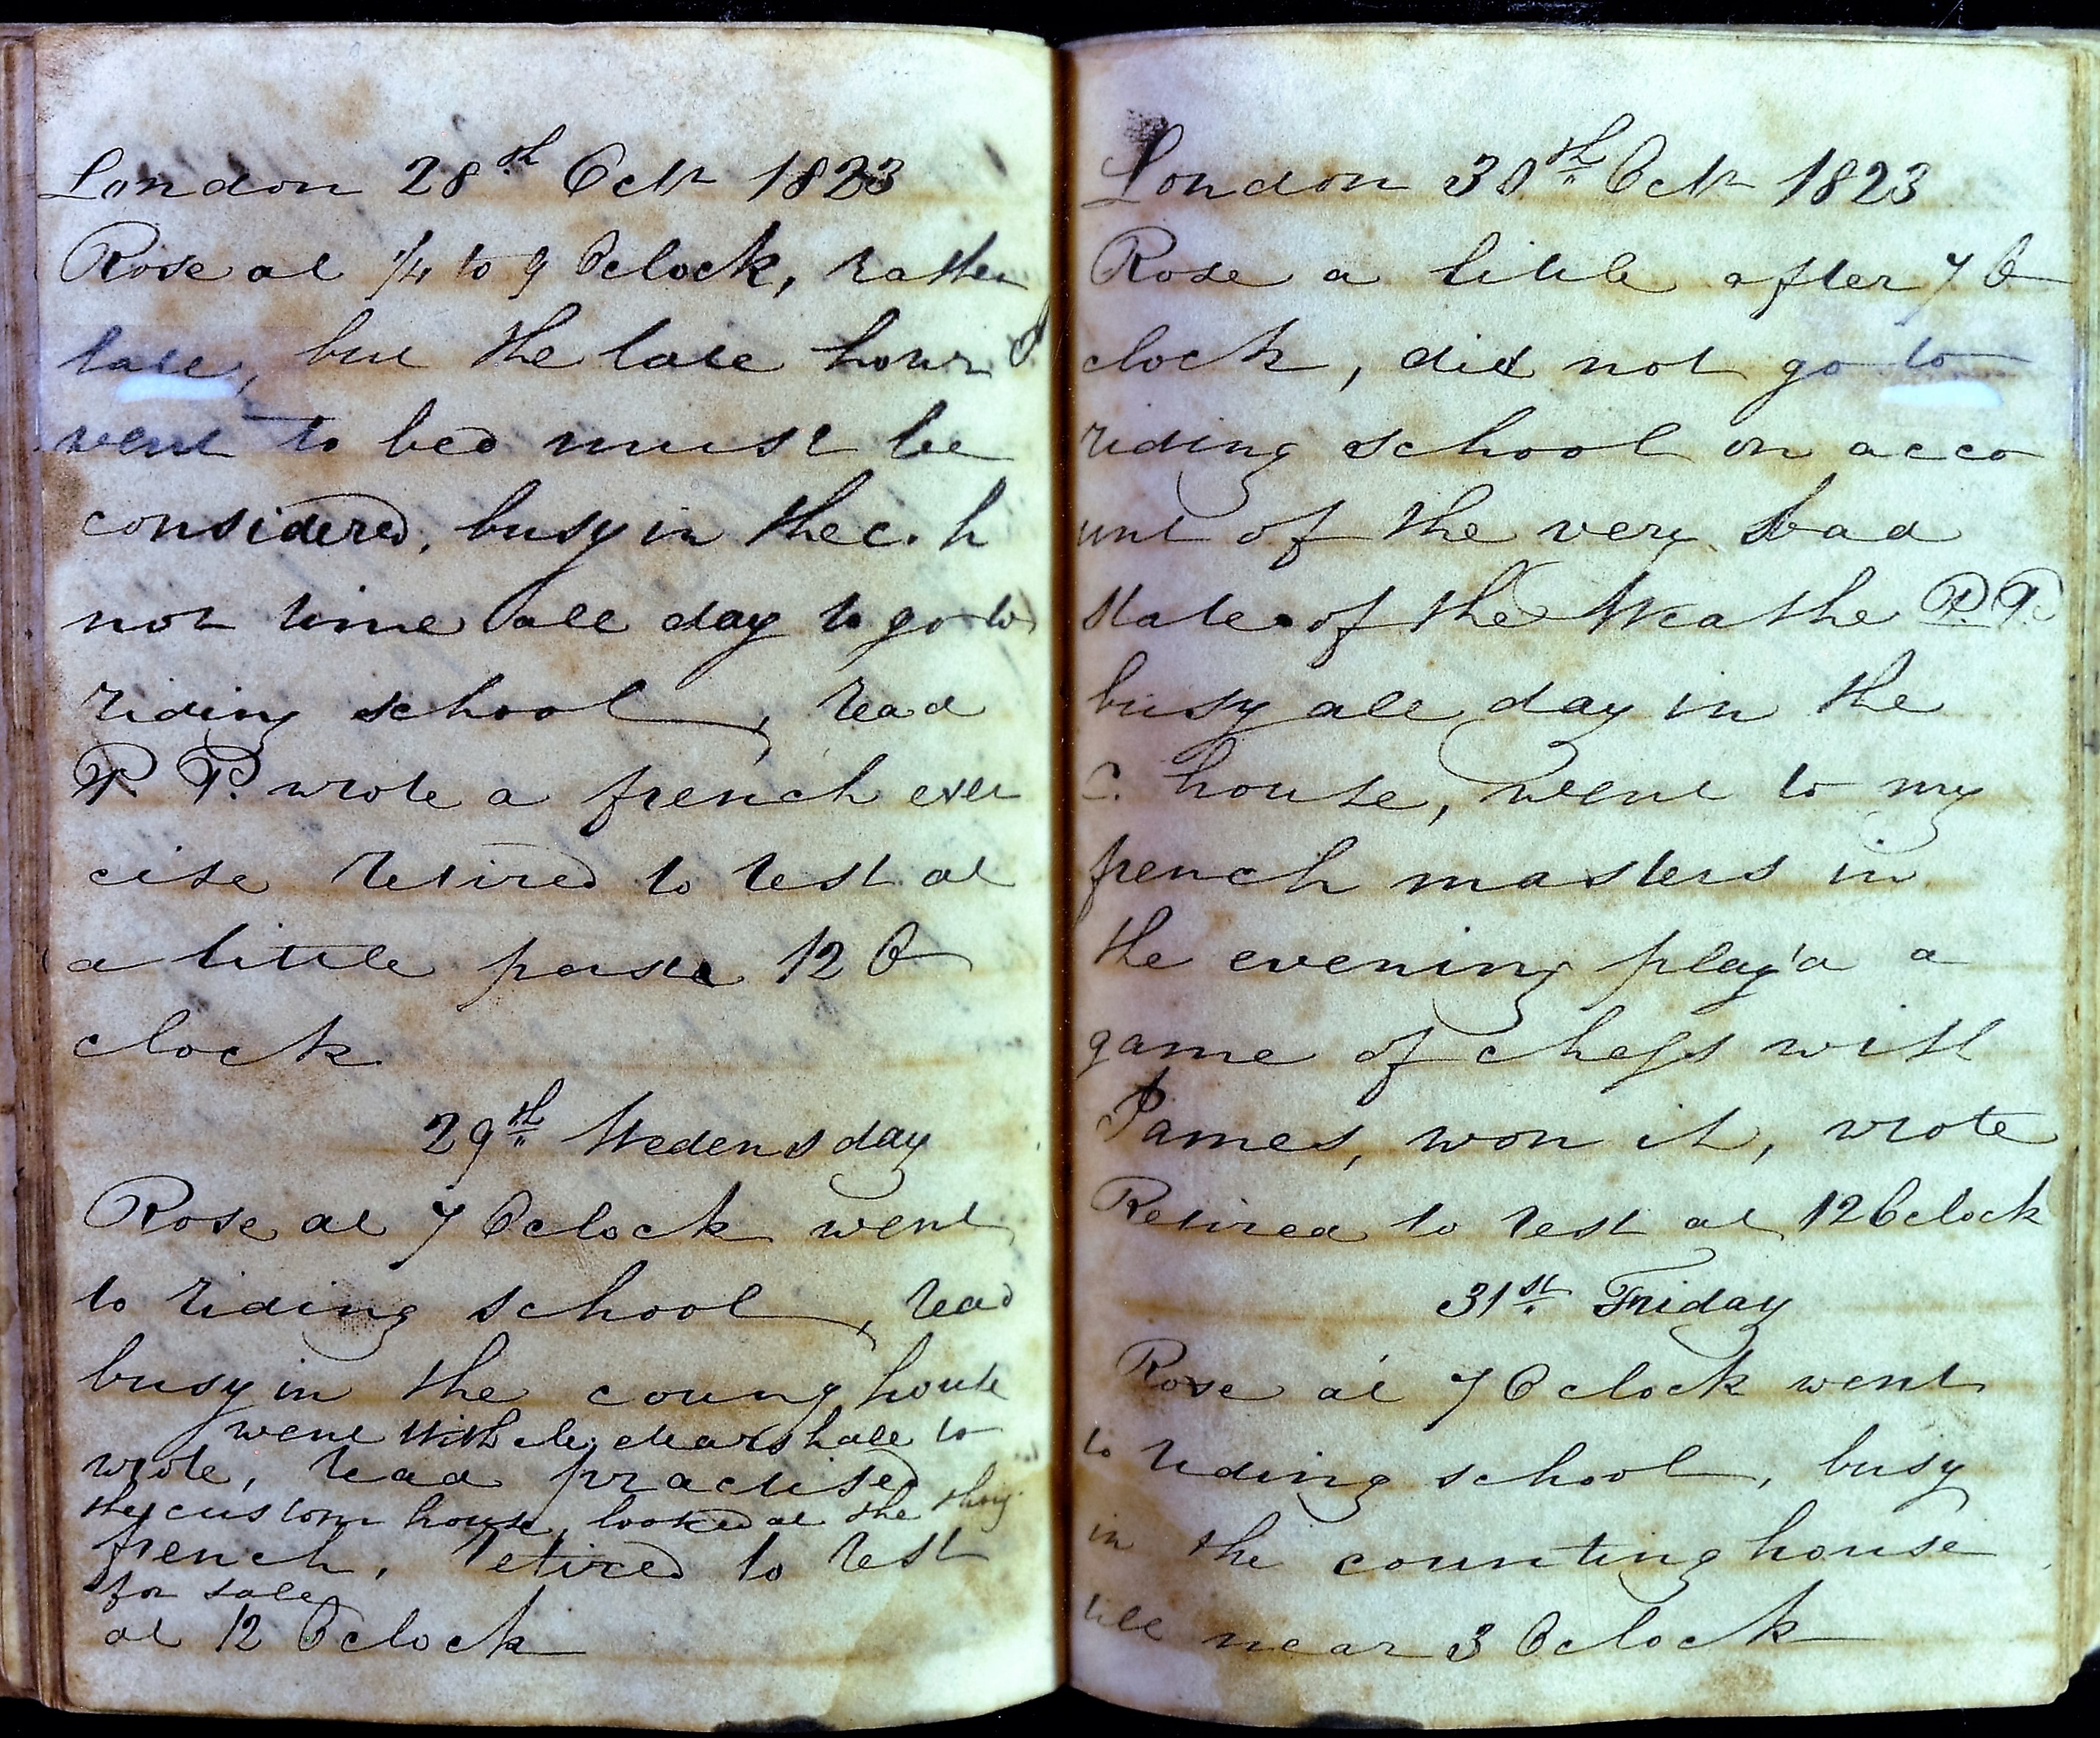 London 28th Octr 1823
Rose at 1/4 to 9 Oclock, rather
late, but the late hour I
went to bed must be
considered, busy in the c. h
not time all day to go to
riding school, read
P. P. wrote a french exer
cise retired to rest at
a little past 12 O
clock
29th Wedensday
Rose at 7 Oclock went
to riding school, read
busy in the coung house
went with Marshall to
wrote, read practised
the custom house, looked at the thing
french, retired to rest
for sale
at 12 Oclock
London 30th Octr 1823
Rose a little after 7 O
clock, did not go to
riding school on acco
unt of the very bad
state of the Weathe P. P.
busy all day in the
c. house, went to my
french masters in
the evening play'd a
game of chess with
James, won it, wrote
Retired to rest at 12 Oclock
31st Friday
Rose at 7 Oclock went
to riding school, busy
in the counting house
till near 3 Oclock